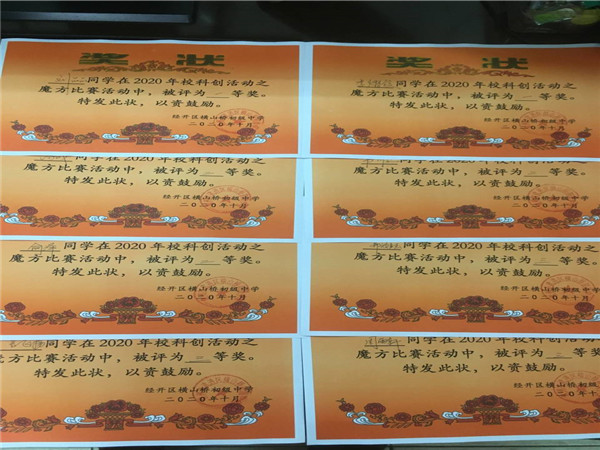 奖状
同学在2020年校科创活动之
魔方比赛活动中，被评为 等奖。
特发此状，以资鼓励。
经开区横山桥初级中学
二〇二〇年十月
奖状
同学在2020年校科创活动之
魔方比赛活动中，被评为 等奖。
特发此状，以资鼓励。
经开区横山桥初级中学
二〇二〇年十月
同学在2020年校科创活动之
魔方比赛活动中，被评为 等奖。
特发此状，以资鼓励。
经开区横山桥初级中学
二〇二〇年十月
同学在2020年校科创活动之
魔方比赛活动中，被评为 等奖。
特发此状，以资鼓励。
经开区横山桥初级中学
二〇二〇年十月
同学在2020年校科创活动之
魔方比赛活动中，被评为 等奖。
特发此状，以资鼓励。
经开区横山桥初级中学
二〇二〇年十月
同学在2020年校科创活动之
魔方比赛活动中，被评为 等奖。
特发此状，以资鼓励。
经开区横山桥初级中学
二〇二〇年十月
同学在2020年校科创活动之
魔方比赛活动中，被评为 等奖。
特发此状，以资鼓励。
经开区横山桥初级中学
二〇二〇年十月
同学在2020年校科创活动之
魔方比赛活动中，被评为 等奖。
特发此状，以资鼓励。
经开区横山桥初级中学
二〇二〇年十月